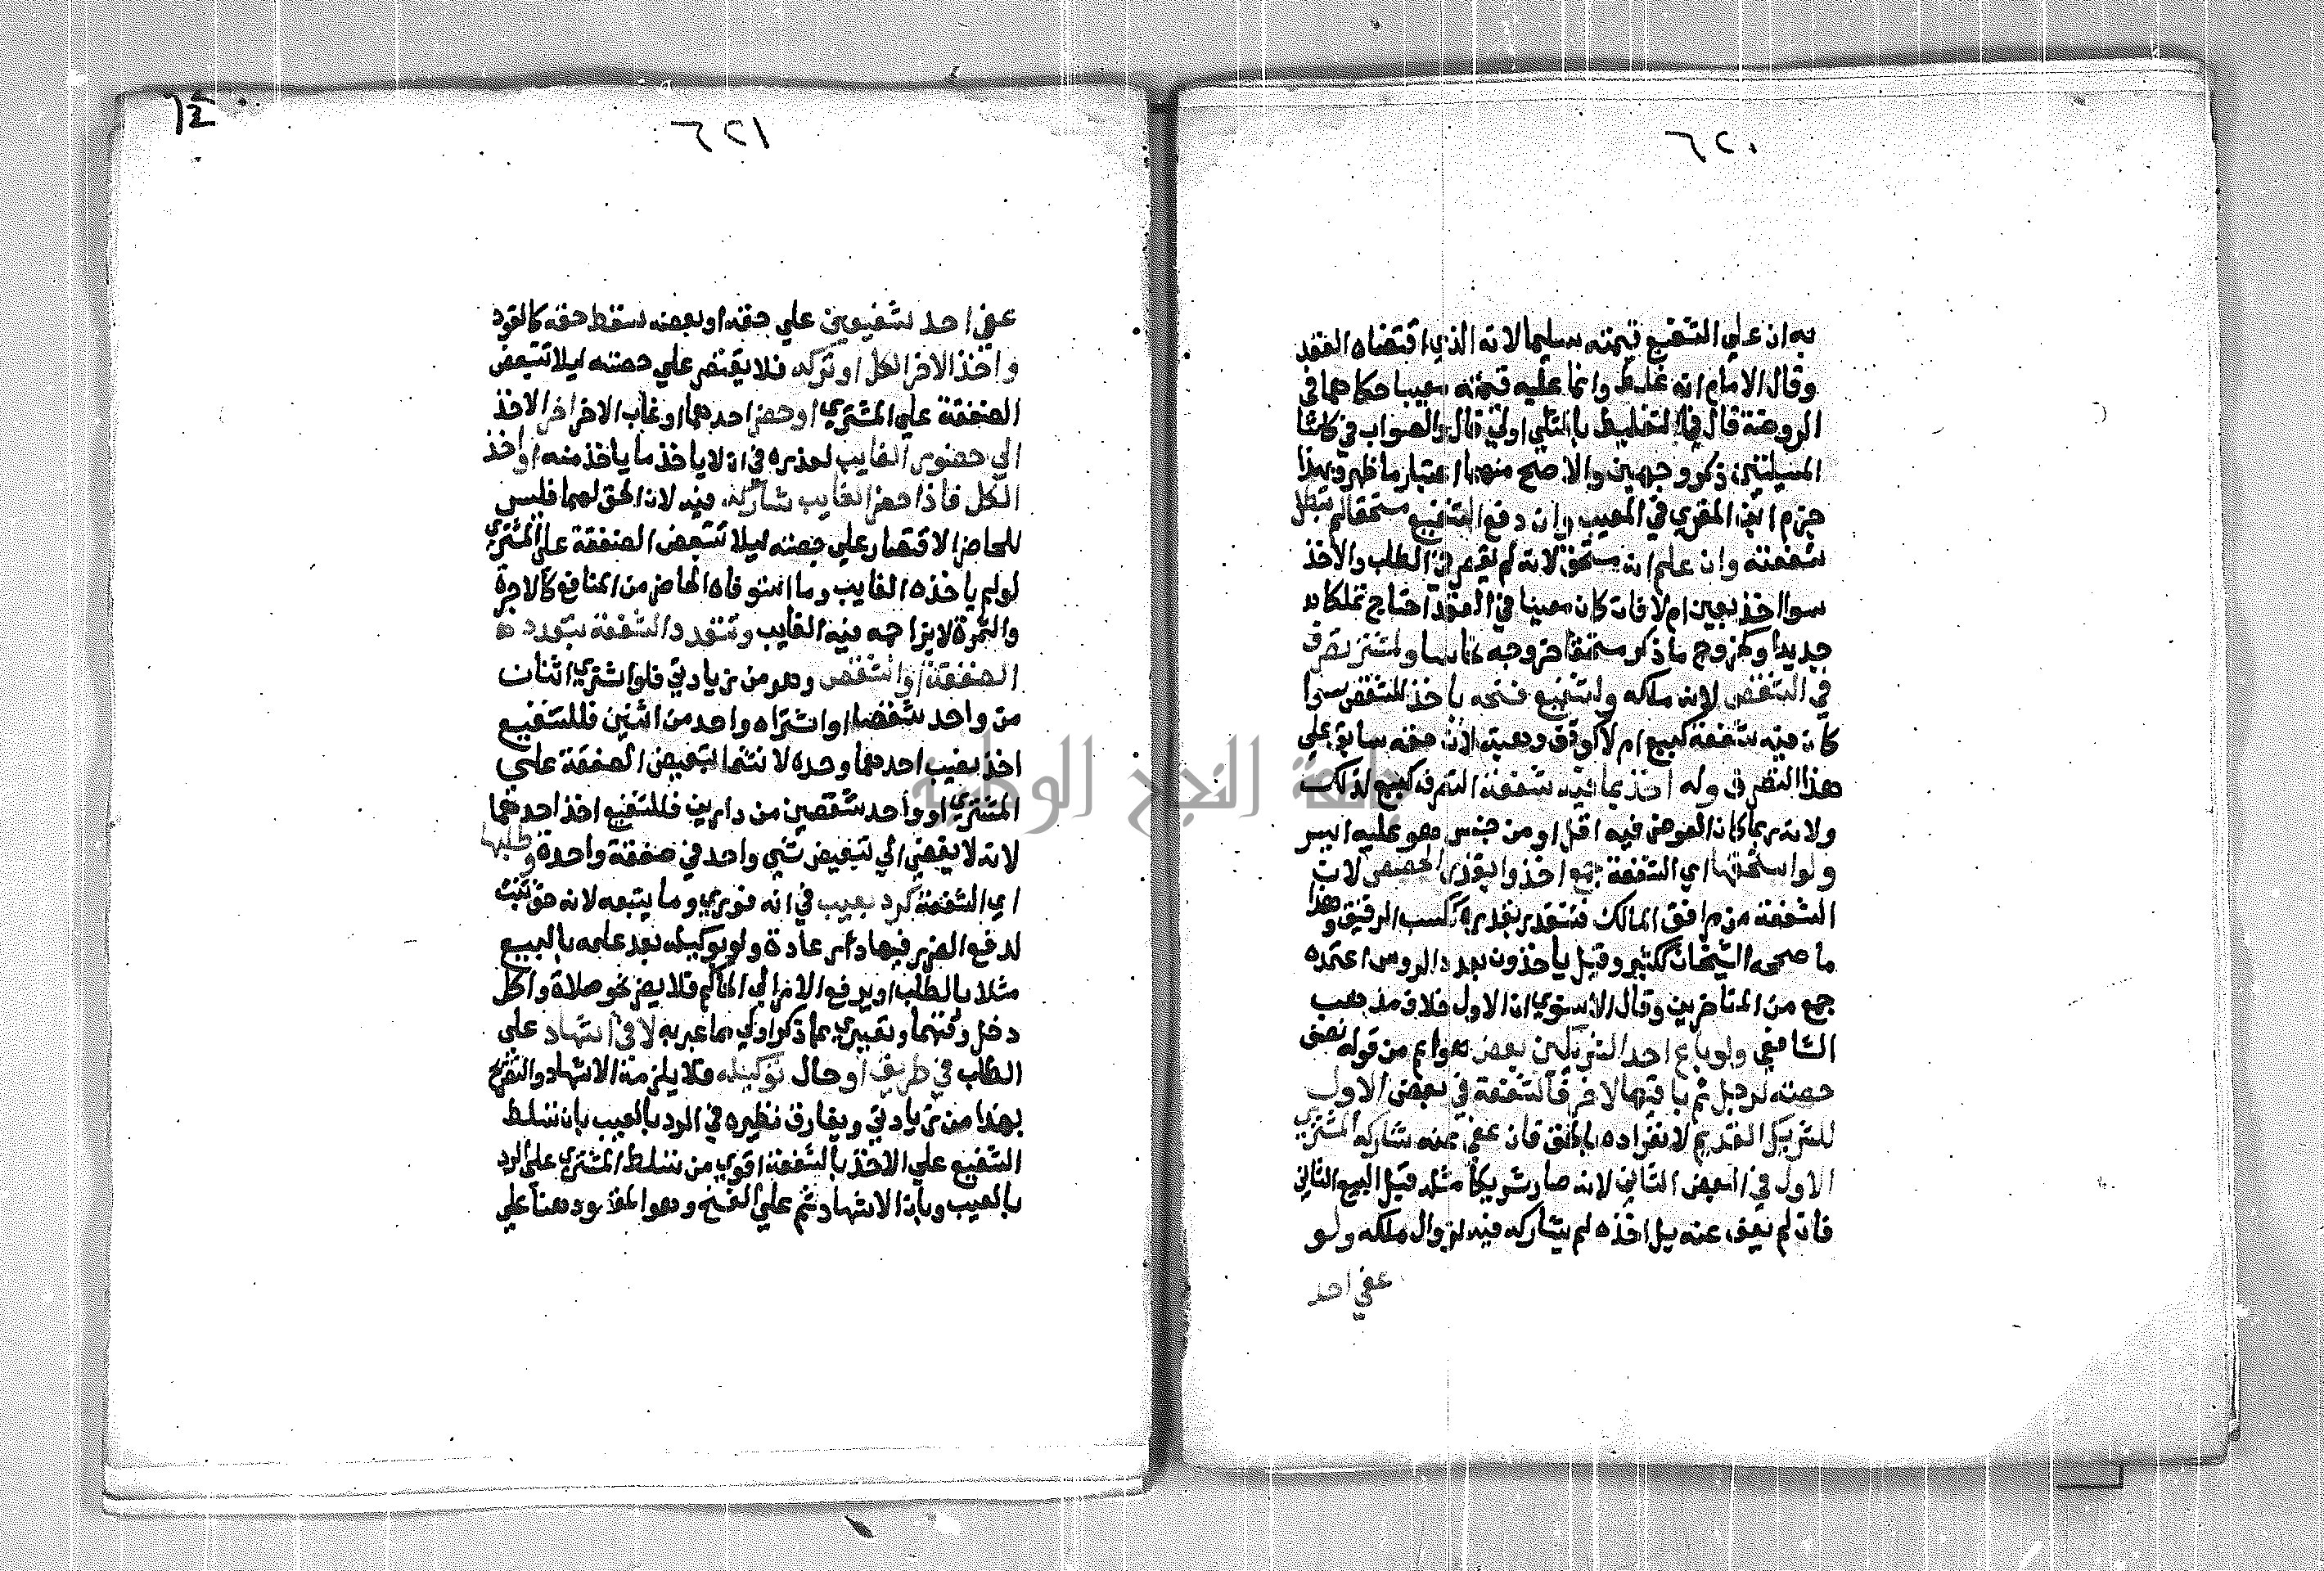 ٦٢٠
به ان علي الشفيع قيمته سليما لانه الذي اقتضاه العقد
وقال الامام انه غلط وانما عليه قيمته معيبا حكاهما في
الروضة قال فيها التغليط بالمثلي اولي قال والصواب في كلتا
المسيلتين ذكر وجهين والاصح منهما اعتبار ما ظهر وبهذا
جزم ابن المقري في المعيب وان دفع الشفيع مستحقا لم تبطل
شفعته وان علم انه مستحق لانه لم يقصر في الطلب والاخذ
سوا اخذ بعين ام لا فان كان معينا في العقد احتاج تملكا
جديدا وكخروج ما ذكر مستحقا خروجه نحاسا ولمشتر تصرف
في الشقص لانه ملكه ولشفيع فسخه باخذ للشقص سوا
كان فيه شفعة كبيع ام لا كوقف وهبة لان حقه سابق علي
هذا التصرف وله اخذ بما فيه شفعة التصرف كبيع لذلك
ولانه ربما كان العوض فيه اقل او من جنس هو عليه ايسر
ولو استحقها اي الشفعة جمع اخذوا بقدر الحصص لان
الشفعة من مرافق الملك فتتقدر بقدره ككسب الرقيق وهذا
ما صححه الشيخان ككثير وقيل ياخذون بعدد الروس اعتمده
جمع من المتاخرين وقال الاسنوي ان الاول خلاف مذهب
الشافعي ولو باع احد الشريكين بعض هو اعم من قوله نصف
حصته لرجل ثم باقيها لاخر فالشفعة في بعض الاول
للشريك القديم لانفراده بالحق فان عفي عنه شاركه المشتري
الاول في البعض الثاني لانه صار شريكا مثله قبل البيع الثاني
فان لم يعف عنه بل اخذه لم يشاركه فيه لزوال ملكه ولو
عفي احد
٦٤
٦٢١
عفي احد شفيعين علي حقه او بعضه سقط حقه كالقود
واخذ الاخر الكل او تركه فلا يقتصر علي حصته ليلا تتبعض
الصفقة علي المشتري او حضر احدهما وغاب الاخر اخر الاخذ
الي حضور الغايب لعذره في ان لا ياخذ ما ياخذ منه او اخذ
الكل فاذا حضر الغايب شاركه فيه لان الحق لهما فليس
للحاضر الاقتصار علي حصته ليلا تتبعض الصفقة علي المشتري
لو لم ياخذه الغايب وما استوفاه الحاضر من المنافع كالاجرة
والثمرة لا يزاحمه فيه الغايب وتتعدد الشفعة بتعدد
الصفقة او الشقص وهو من زيادتي فلو اشتري اثنان
من واحد شقصا او اشتراه واحد من اثنين فللشفيع
اخذ نصيب احدهما وحده لانتفا تبعيض الصفقة علي
المشتري او واحد شقصين من دارين فللشفيع اخذ احدهما
لانه لا يفضي الي تبعيض شي واحد في صفقة واحدة وطلبها
اي الشفعة كرد بعيب في انه فوري وما يتبعه لانه حق ثبت
لدفع الضرر فيبادر عادة ولو بوكيله بعد علمه بالبيع
مثلا بالطلب او يرفع الامر الي الحاكم فلا يضر نحو صلاة واكل
دخل وقتهما وتعبيري بما ذكر اولي مما عبر به لا في اشهاد علي
الطلب في طريقه او حال توكيله فلا يلزمه الاشهاد والتصريح
بهذا من زيادتي ويفارق نظيره في الرد بالعيب بان تسلط
الشفيع علي الاخذ بالشفعة اقوي من تسلط المشتري علي الرد
بالعيب وبان الاشهاد ثم علي الفسخ وهو المقصود وهنا علي
جامعة النجاح الوطنية